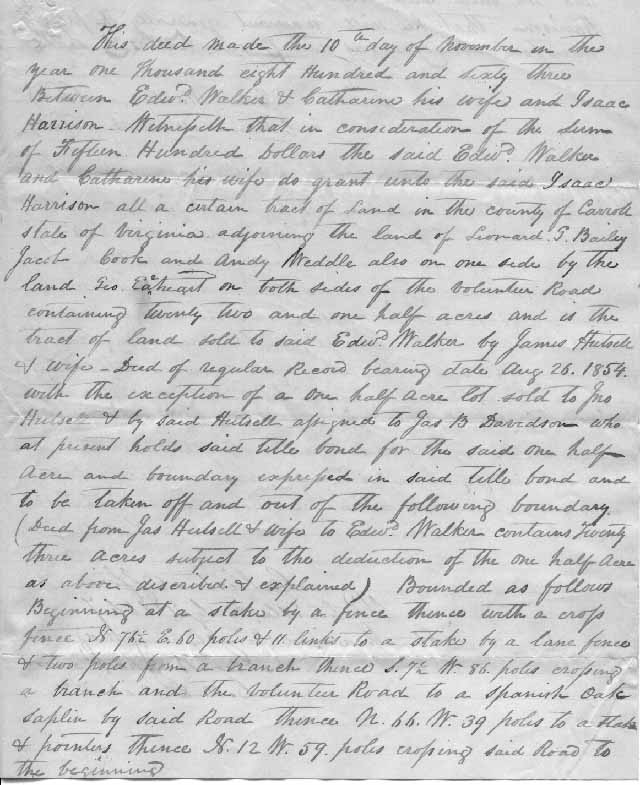 This deed made the 10th day of November in the
year one Thousand eight Hundred and sixty three
Between Edwd. Walker & Catharine his wife and Isaac
Harrison Witnesseth that in consideration of the sum
of Fifteen Hundred Dollars the said Edwd. Walker
and Catharine his wife do grant unto the said Isaac
Harrison all a certain tract of Land in the county of Carroll
state of Virginia adjoining the land of Leonard. S. Bailey
Jacob Cook and Andy Weddle also on one side by the
land Geo. Eaheart on both sides of the Volunteer Road
containing twenty two and one half acres and is the
tract of land sold to said Edwd. Walker by James Hutsell
& wife - Deed of regular Record bearing date Aug 26. 1854.
with the exception of a one half Acre lot sold to Jno
Hutsell & by said Hutsell assigned to Jas B Davidson who
at present holds said title bond for the said one half
Acre and boundary expressed in said title bond and
to be taken off and out of the following boundary
(Deed from Jas Hutsell & wife to Edwd. Walker contains Twenty
three Acres subject to the deduction of the one half Acre
as above described & explained) Bounded as follows
Beginning at a stake by a fence thence with a cross
fence N. 76½ E. 60 poles & 11 links to a stake by a lane fence
& two poles from a branch thence S. 7½ W. 86. poles crossing
a branch and the Volunteer Road to a Spanish Oak
saplin by said Road thence N. 66. W. 39 poles to a stake
& pointers thence N. 12 W. 59. poles crossing said Road to
the beginning